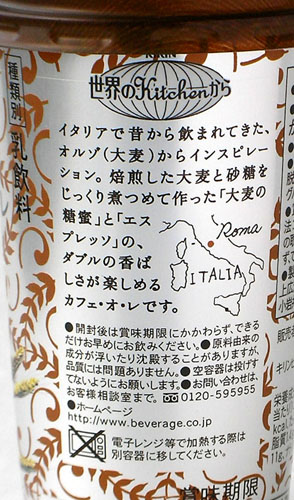 KIRIN
世界のKitchenから
種類別 乳飲料
イタリアで昔から飲まれてきた、
オルゾ(大麦)からインスピレー
ション。焙煎した大麦と砂糖を
じっくり煮つめて作った「大麦の
糖蜜」と「エス
プレッソ」の、
ダブルの香ば
しさが楽しめる
カフェ・オ・レです。
Roma
ITALIA
●開封後は賞味期限にかかわらず、できる
だけお早めにお飲みください。●原料由来の
成分が浮いたり沈殿することがありますが、
品質には問題ありません。●空容器は投げす
てないようにお願いします。●お問い合わせは、
お客様相談室まで。0120-595955
●ホームページ
http://www.beverage.co.jp
電子レンジ等で加熱する際は
別容器に移してください。
賞味期限